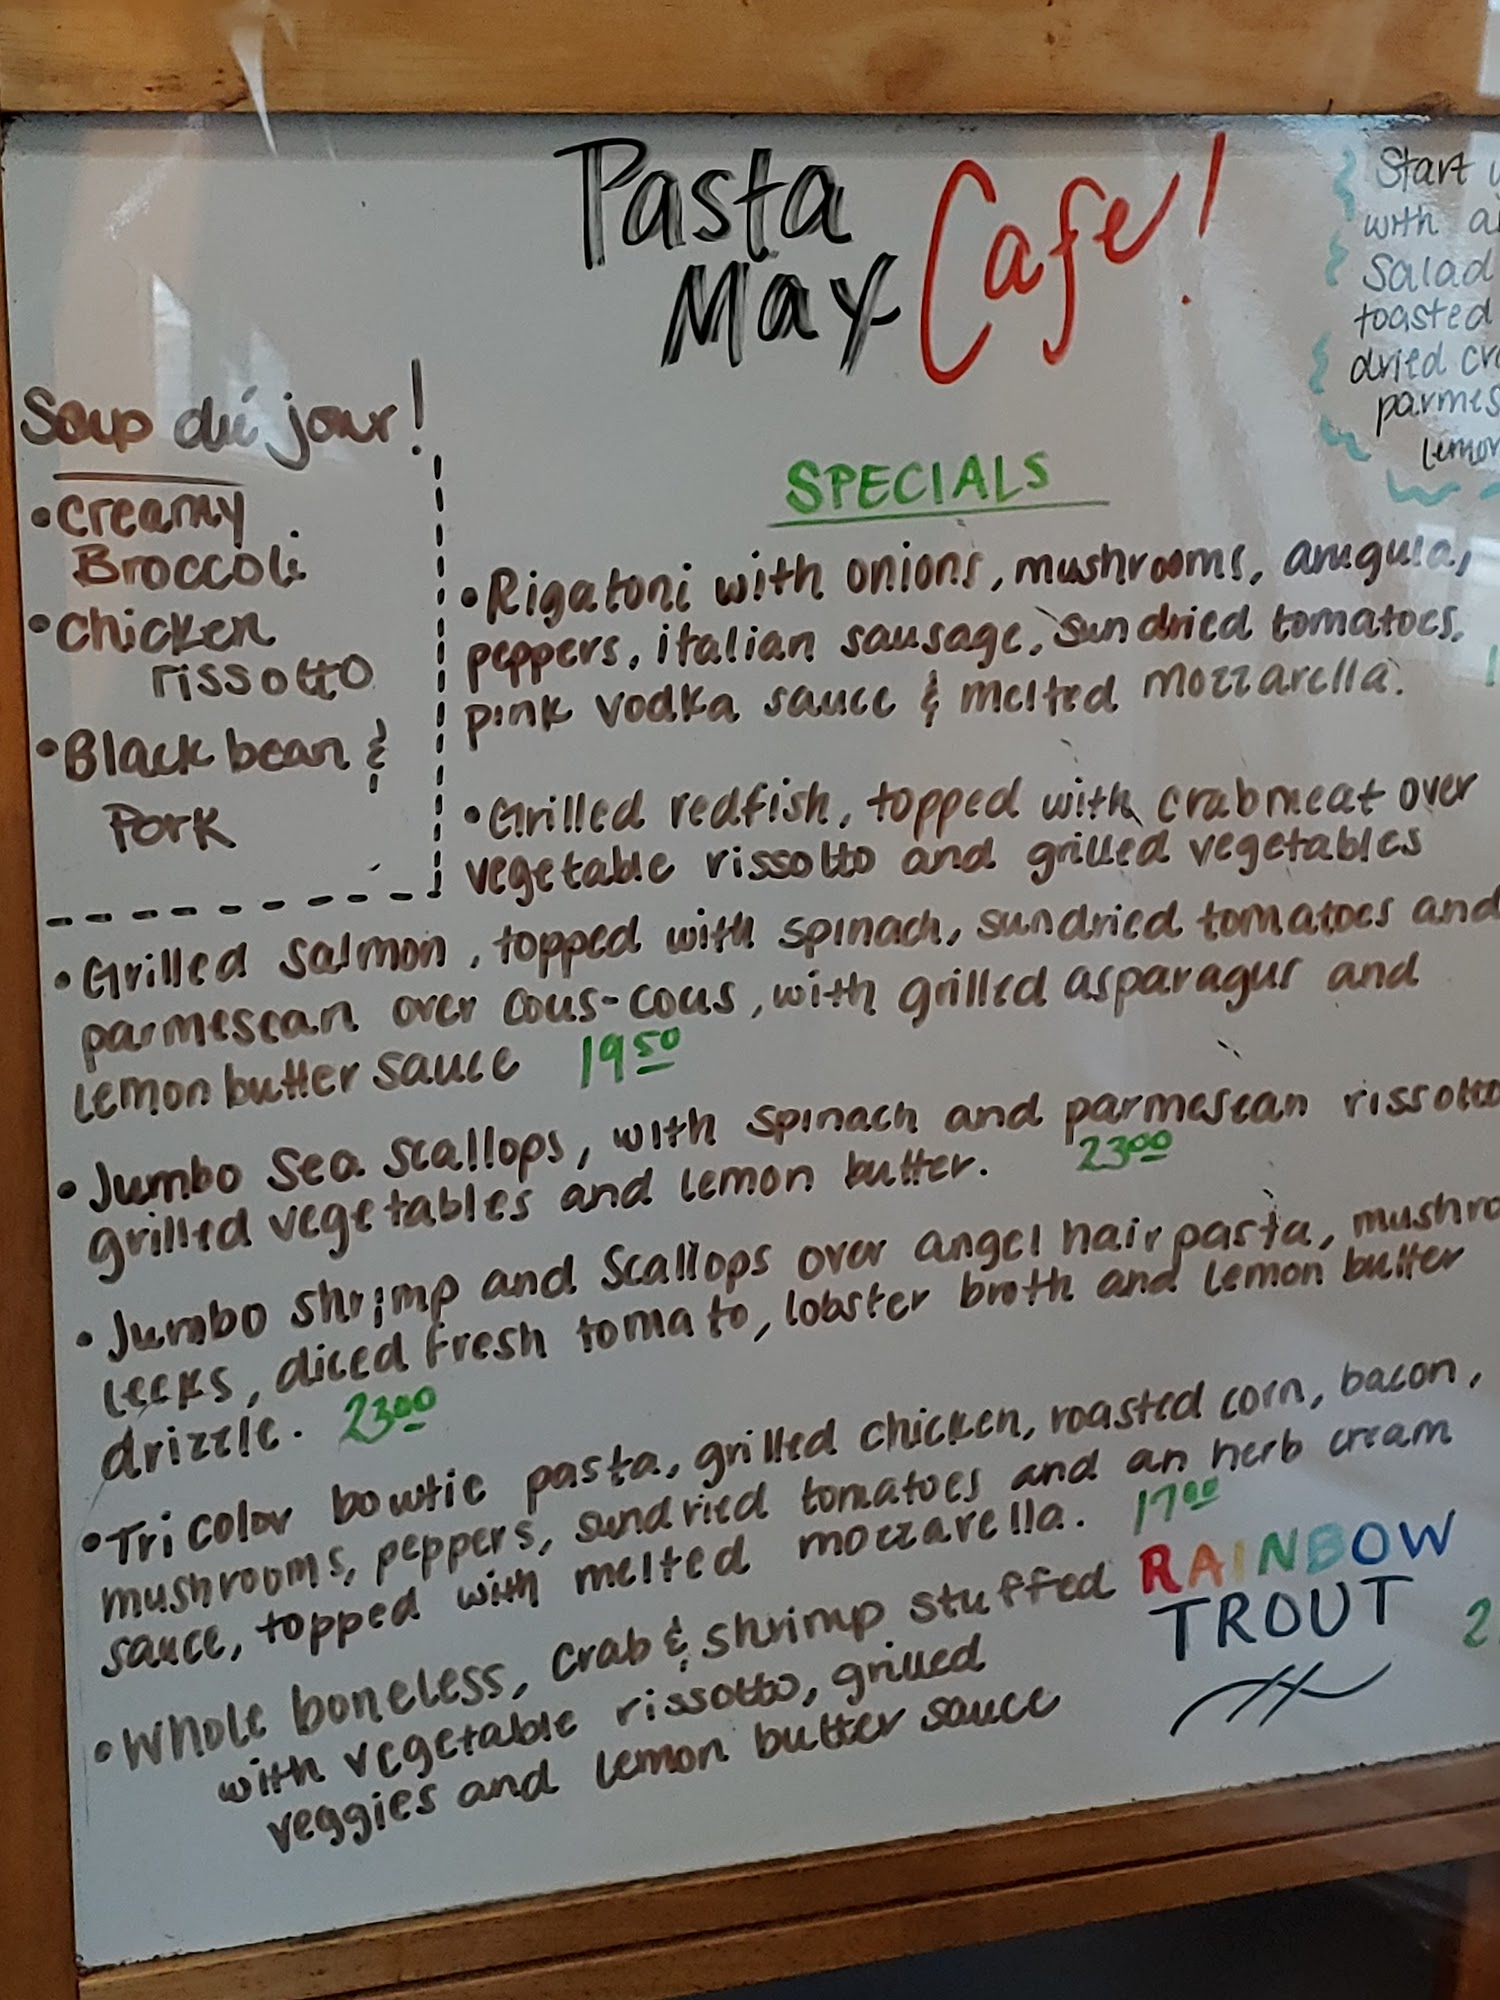 Pasta
May Cafe!
Start
with
Salad
toasted
dried
lemon
Soup du jour!
• Creamy
Broccoli
• Chicken
rissotto
• Black bean &
Pork
SPECIALS
• Rigatoni with onions, mushrooms, arugula,
peppers, italian sausage, sundried tomatoes,
pink vodka sauce & melted mozzarella.
• Grilled redfish, topped with crabmeat over
vegetable rissotto and grilled vegetables
• Grilled salmon, topped with spinach, sundried tomatoes and
parmesean over cous-cous, with grilled asparagus and
lemon butter sauce 19 50
• Jumbo Sea Scallops, with spinach and parmesean rissotto
grilled vegetables and lemon butter. 23 00
• Jumbo shrimp and Scallops over angel hair pasta,
leeks, diced fresh tomato, lobster broth and lemon butter
drizzle. 23 00
• Tri color bowtie pasta, grilled chicken, roasted corn, bacon,
mushrooms, peppers, sundried tomatoes and an herb cream
sauce, topped with melted mozzarella. 17 00
• Whole boneless, crab & shrimp stuffed RAINBOW
TROUT
with vegetable rissotto, grilled
veggies and lemon butter sauce